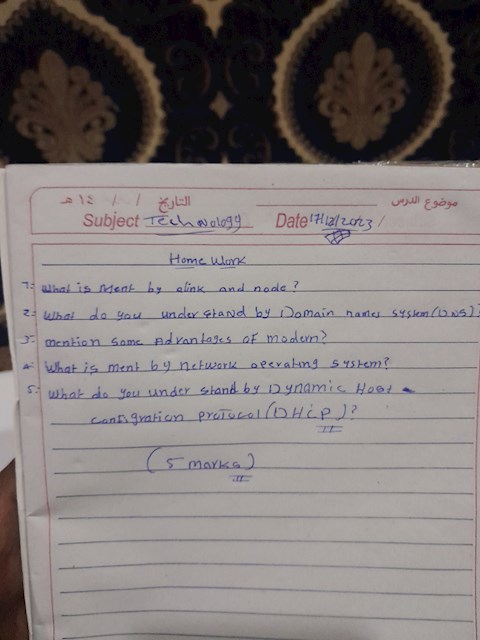 موضوع الدرس التاريخ / / ١٤ هـ
Subject Technology Date 17/12/2023 /
Home Work
1- What is ment by alink and node?
2- What do you under stand by Domain names system (DNS)?
3- mention some Advantages of modern?
4- What is ment by network operating system?
5- What do you under stand by Dynamic Host
configration protocol (DHCP)?
(5 marks)